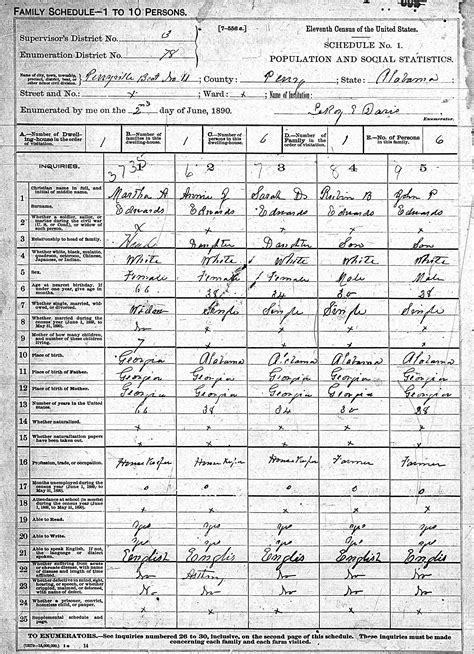 FAMILY SCHEDULE—1 TO 10 PERSONS.
Supervisor's District No. 3
Enumeration District No. 78
[7-556 a.]
Eleventh Census of the United States.
SCHEDULE No. 1.
POPULATION AND SOCIAL STATISTICS.
Name of city, town, township, precinct, district, beat, or other minor civil division. Perryville Beat No. 11 County: Perry State: Alabama
Street and No.: x Ward: x Name of Institution:
Enumerated by me on the 2nd day of June, 1890. LeRoy E Davis
Enumerator.
A.—Number of Dwelling-house in the order of visitation. 1 B.—Number of families in this dwelling-house. 1 C.—Number of persons in this dwelling-house. 6 D.—Number of Family in the order of visitation. 1 E.—No. of Persons in this family. 6
INQUIRIES. 1 2 3 4 5
1 Christian name in full, and initial of middle name. Martha A Annie J Sarah Rubin B John P
Surname. Edwards Edwards Edwards Edwards Edwards
2 Whether a soldier, sailor, or marine during the civil war (U. S. or Conf.), or widow of such person. x x x x
3 Relationship to head of family. Head Daughter Daughter Son Son
4 Whether white, black, mulatto, quadroon, octoroon, Chinese, Japanese, or Indian. White White White White White
5 Sex. Female Female Female Male Male
6 Age at nearest birthday. If under one year, give age in months. 66 38 34 30 28
7 Whether single, married, widowed, or divorced. Widow Single Single Single Single
8 Whether married during the census year (June 1, 1889, to May 31, 1890). No x x x x
9 Mother of how many children, and number of these children living. 7 x x x x
10 Place of birth. Georgia Alabama Alabama Alabama Alabama
11 Place of birth of Father. Georgia Georgia Georgia Georgia Georgia
12 Place of birth of Mother. Georgia Georgia Georgia Georgia Georgia
13 Number of years in the United States. 66 38 34 30 28
14 Whether naturalized. x x x x x
15 Whether naturalization papers have been taken out. x x x x x
16 Profession, trade, or occupation. House Keeper House Keeper House Keeper Farmer Farmer
17 Months unemployed during the census year (June 1, 1889, to May 31, 1890). 0 0 0 0 0
18 Attendance at school (in months) during the census year (June 1, 1889, to May 31, 1890). x x x x x
19 Able to Read. yes yes yes yes yes
20 Able to Write. yes yes yes yes yes
21 Able to speak English. If not, the language or dialect spoken. English Englis English English English
22 Whether suffering from acute or chronic disease, with name of disease and length of time afflicted. No No No No
23 Whether defective in mind, sight, hearing, or speech, or whether crippled, maimed, or deformed, with name of defect.
24 Whether a prisoner, convict, homeless child, or pauper. x x x x x
25 Supplemental schedule and page.
TO ENUMERATORS.—See inquiries numbered 26 to 30, inclusive, on the second page of this schedule. These inquiries must be made concerning each family and each farm visited.